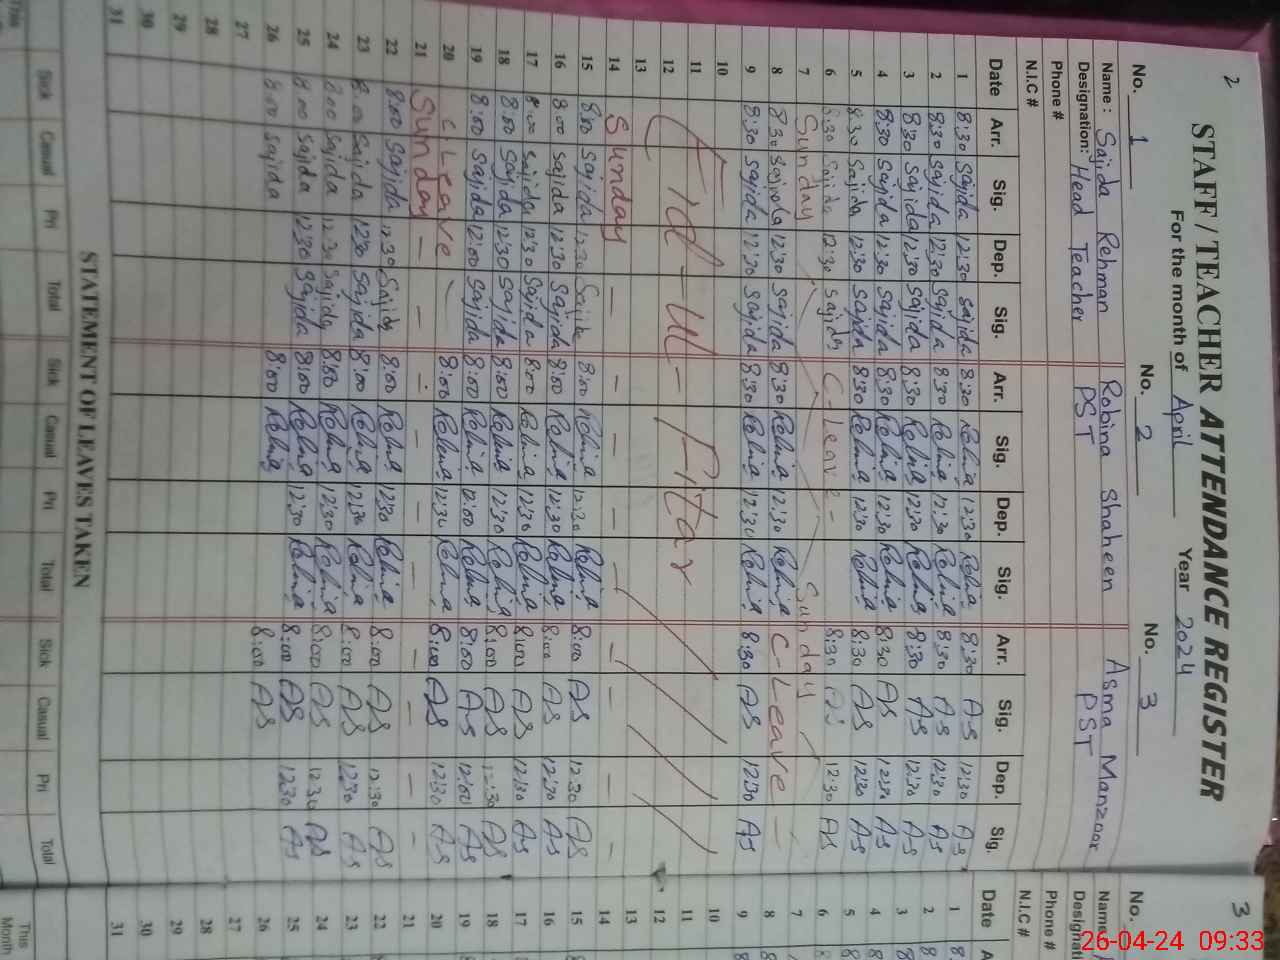 2
STAFF / TEACHER ATTENDANCE REGISTER
For the month of April Year 2024
No. 1 No. 2 No. 3
Name: Sajida Rehman Robina Shaheen Asma Manzoor
Designation: Head Teacher PST PST
Phone #
N.I.C #
Date Arr. Sig. Dep. Sig. Arr. Sig. Dep. Sig. Arr. Sig. Dep. Sig.
1 8:30 Sajida 12:30 Sajida 8:30 Robina 12:30 Robina 8:30 AS 12:30 AS
2 8:30 Sajida 12:30 Sajida 8:30 Robina 12:30 Robina 8:30 AS 12:30 AS
3 8:30 Sajida 12:30 Sajida 8:30 Robina 12:30 Robina 8:30 AS 12:30 AS
4 8:30 Sajida 12:30 Sajida 8:30 Robina 12:30 Robina 8:30 AS 12:30 AS
5 8:30 Sajida 12:30 Sajida 8:30 Robina 12:30 Robina 8:30 AS 12:30 AS
6 8:30 Sajida 12:30 Sajida C-Leave - 8:30 AS 12:30 AS
7 Sunday Sunday
8 8:30 Sajida 12:30 Sajida 8:30 Robina 12:30 Robina C-Leave -
9 8:30 Sajida 12:30 Sajida 8:30 Robina 12:30 Robina 8:30 AS 12:30 AS
10
11 Eid-Ul-Fitar
12
13
14 Sunday - - - - - - - - -
15 8:00 Sajida 12:30 Sajida 8:00 Robina 12:30 Robina 8:00 AS 12:30 AS
16 8:00 Sajida 12:30 Sajida 8:00 Robina 12:30 Robina 8:00 AS 12:30 AS
17 8:00 Sajida 12:30 Sajida 8:00 Robina 12:30 Robina 8:00 AS 12:30 AS
18 8:00 Sajida 12:30 Sajida 8:00 Robina 12:30 Robina 8:00 AS 12:30 AS
19 8:00 Sajida 12:00 Sajida 8:00 Robina 12:00 Robina 8:00 AS 12:00 AS
20 C Leave - 8:00 Robina 12:30 Robina 8:00 AS 12:30 AS
21 Sunday - - - - - - - - - -
22 8:00 Sajida 12:30 Sajida 8:00 Robina 12:30 Robina 8:00 AS 12:30 AS
23 8:00 Sajida 12:30 Sajida 8:00 Robina 12:30 Robina 8:00 AS 12:30 AS
24 8:00 Sajida 12:30 Sajida 8:00 Robina 12:30 Robina 8:00 AS 12:30 AS
25 8:00 Sajida 12:30 Sajida 8:00 Robina 12:30 Robina 8:00 AS 12:30 AS
26 8:00 Sajida 8:00 Robina 8:00 AS
27
28
29
30
31
STATEMENT OF LEAVES TAKEN
Sick Casual Pri Total Sick Casual Pri Total Sick Casual Pri Total
This
3
No.
Name
Designati
Phone #
N.I.C #
Date A
1 8
2 8
3 8
4 8
5 8
6
7
8 8
9 8
10
11
12
13
14
15 8
16
17
18
19
20
21
22
23
24
25
26
27
28
29
30
31
This
Month
26-04-24 09:33